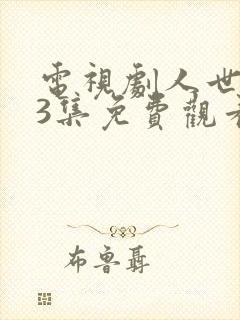 電視劇人世
3集免費觀看
布魯聶